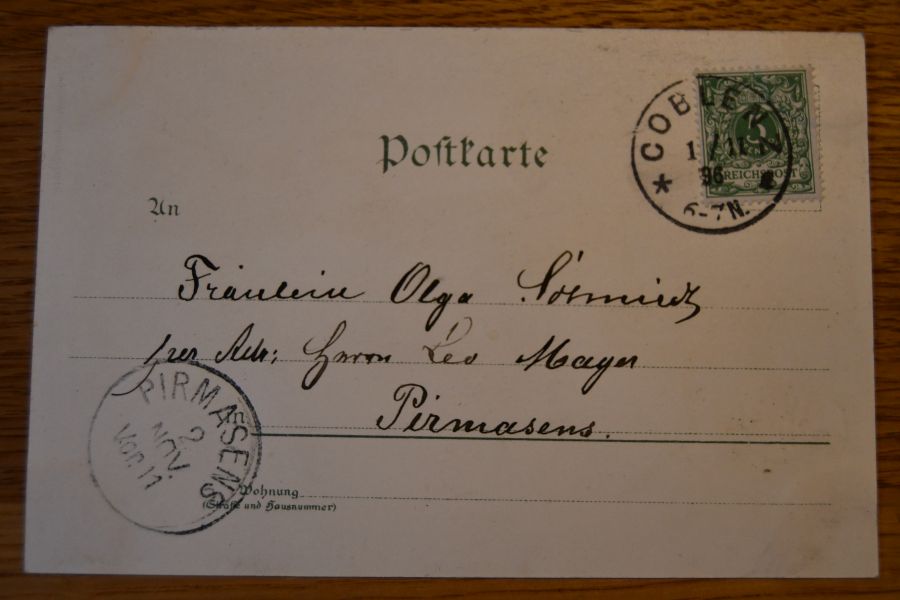 COBLENZ
1/11
96
6-7N.
5
REICHSPOST
Postkarte
An
Fräulein Olga
per Adr: Herrn Leo Mayer
Pirmasens.
in
PIRMASENS
2
NOV.
Vor. 11
Wohnung
(Straße und Hausnummer)